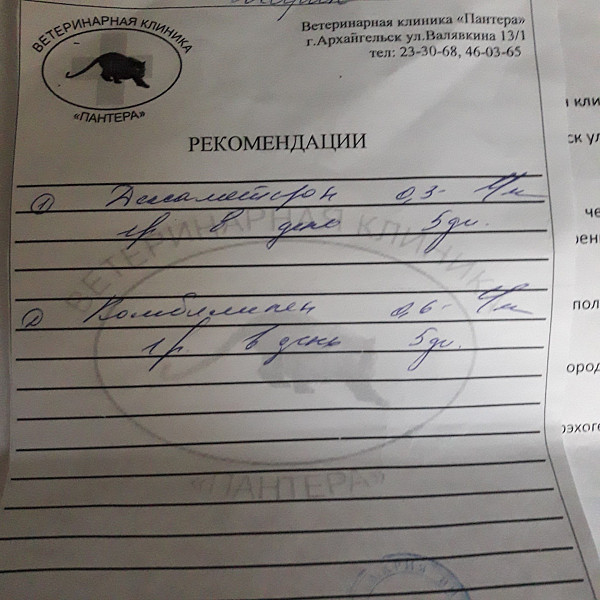 ВЕТЕРИНАРНАЯ КЛИНИКА
«ПАНТЕРА»
Ветеринарная клиника «Пантера»
г.Архангельск ул.Валявкина 13/1
тел: 23-30-68, 46-03-65
РЕКОМЕНДАЦИИ
① Дексаметазон 0,3- в/м
1р. в день 5дн.
② Комбилипен 0,6- в/м
1р. в день 5дн.
ВЕТЕРИНАРНАЯ КЛИНИКА
«ПАНТЕРА»